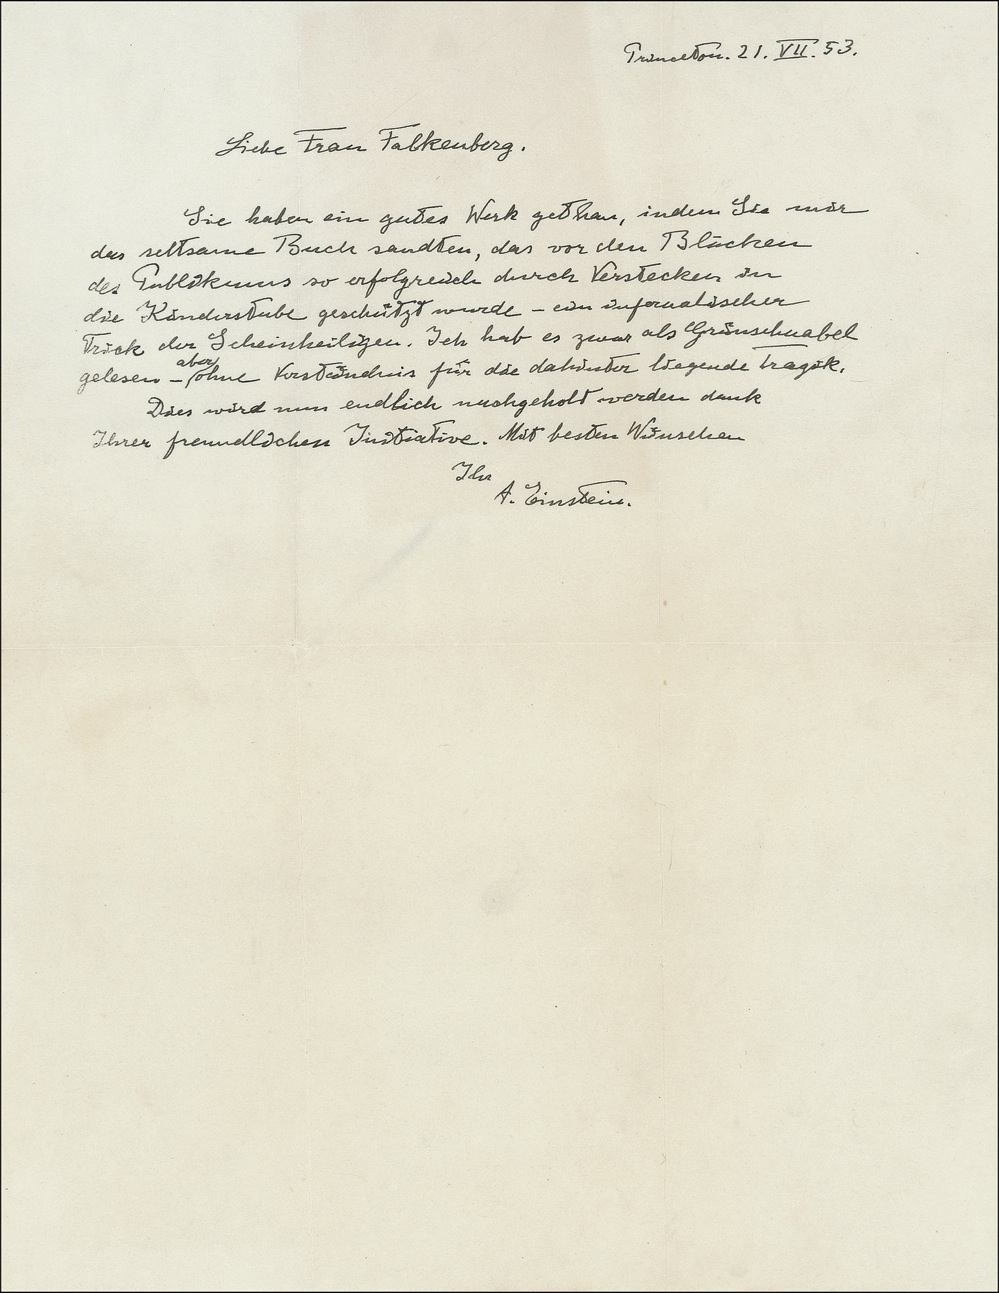 Princeton. 21. VII. 53.
Liebe Frau Falkenberg.
Sie haben ein gutes Werk gethan, indem Sie mir
das seltsame Buch sandten, das vor den Blicken
des Publikums so erfolgreich durch Verstecken in
die Kinderstube geschützt wurde – ein infernalischer
Trick der Scheinheiligen. Ich hab es zwar als Grünschnabel
gelesen – aber ohne Verständnis für die dahinter liegende Tragik.
Dies wird nun endlich nachgeholt werden dank
Ihrer freundlichen Initiative. Mit besten Wünschen
Ihr
A. Einstein.